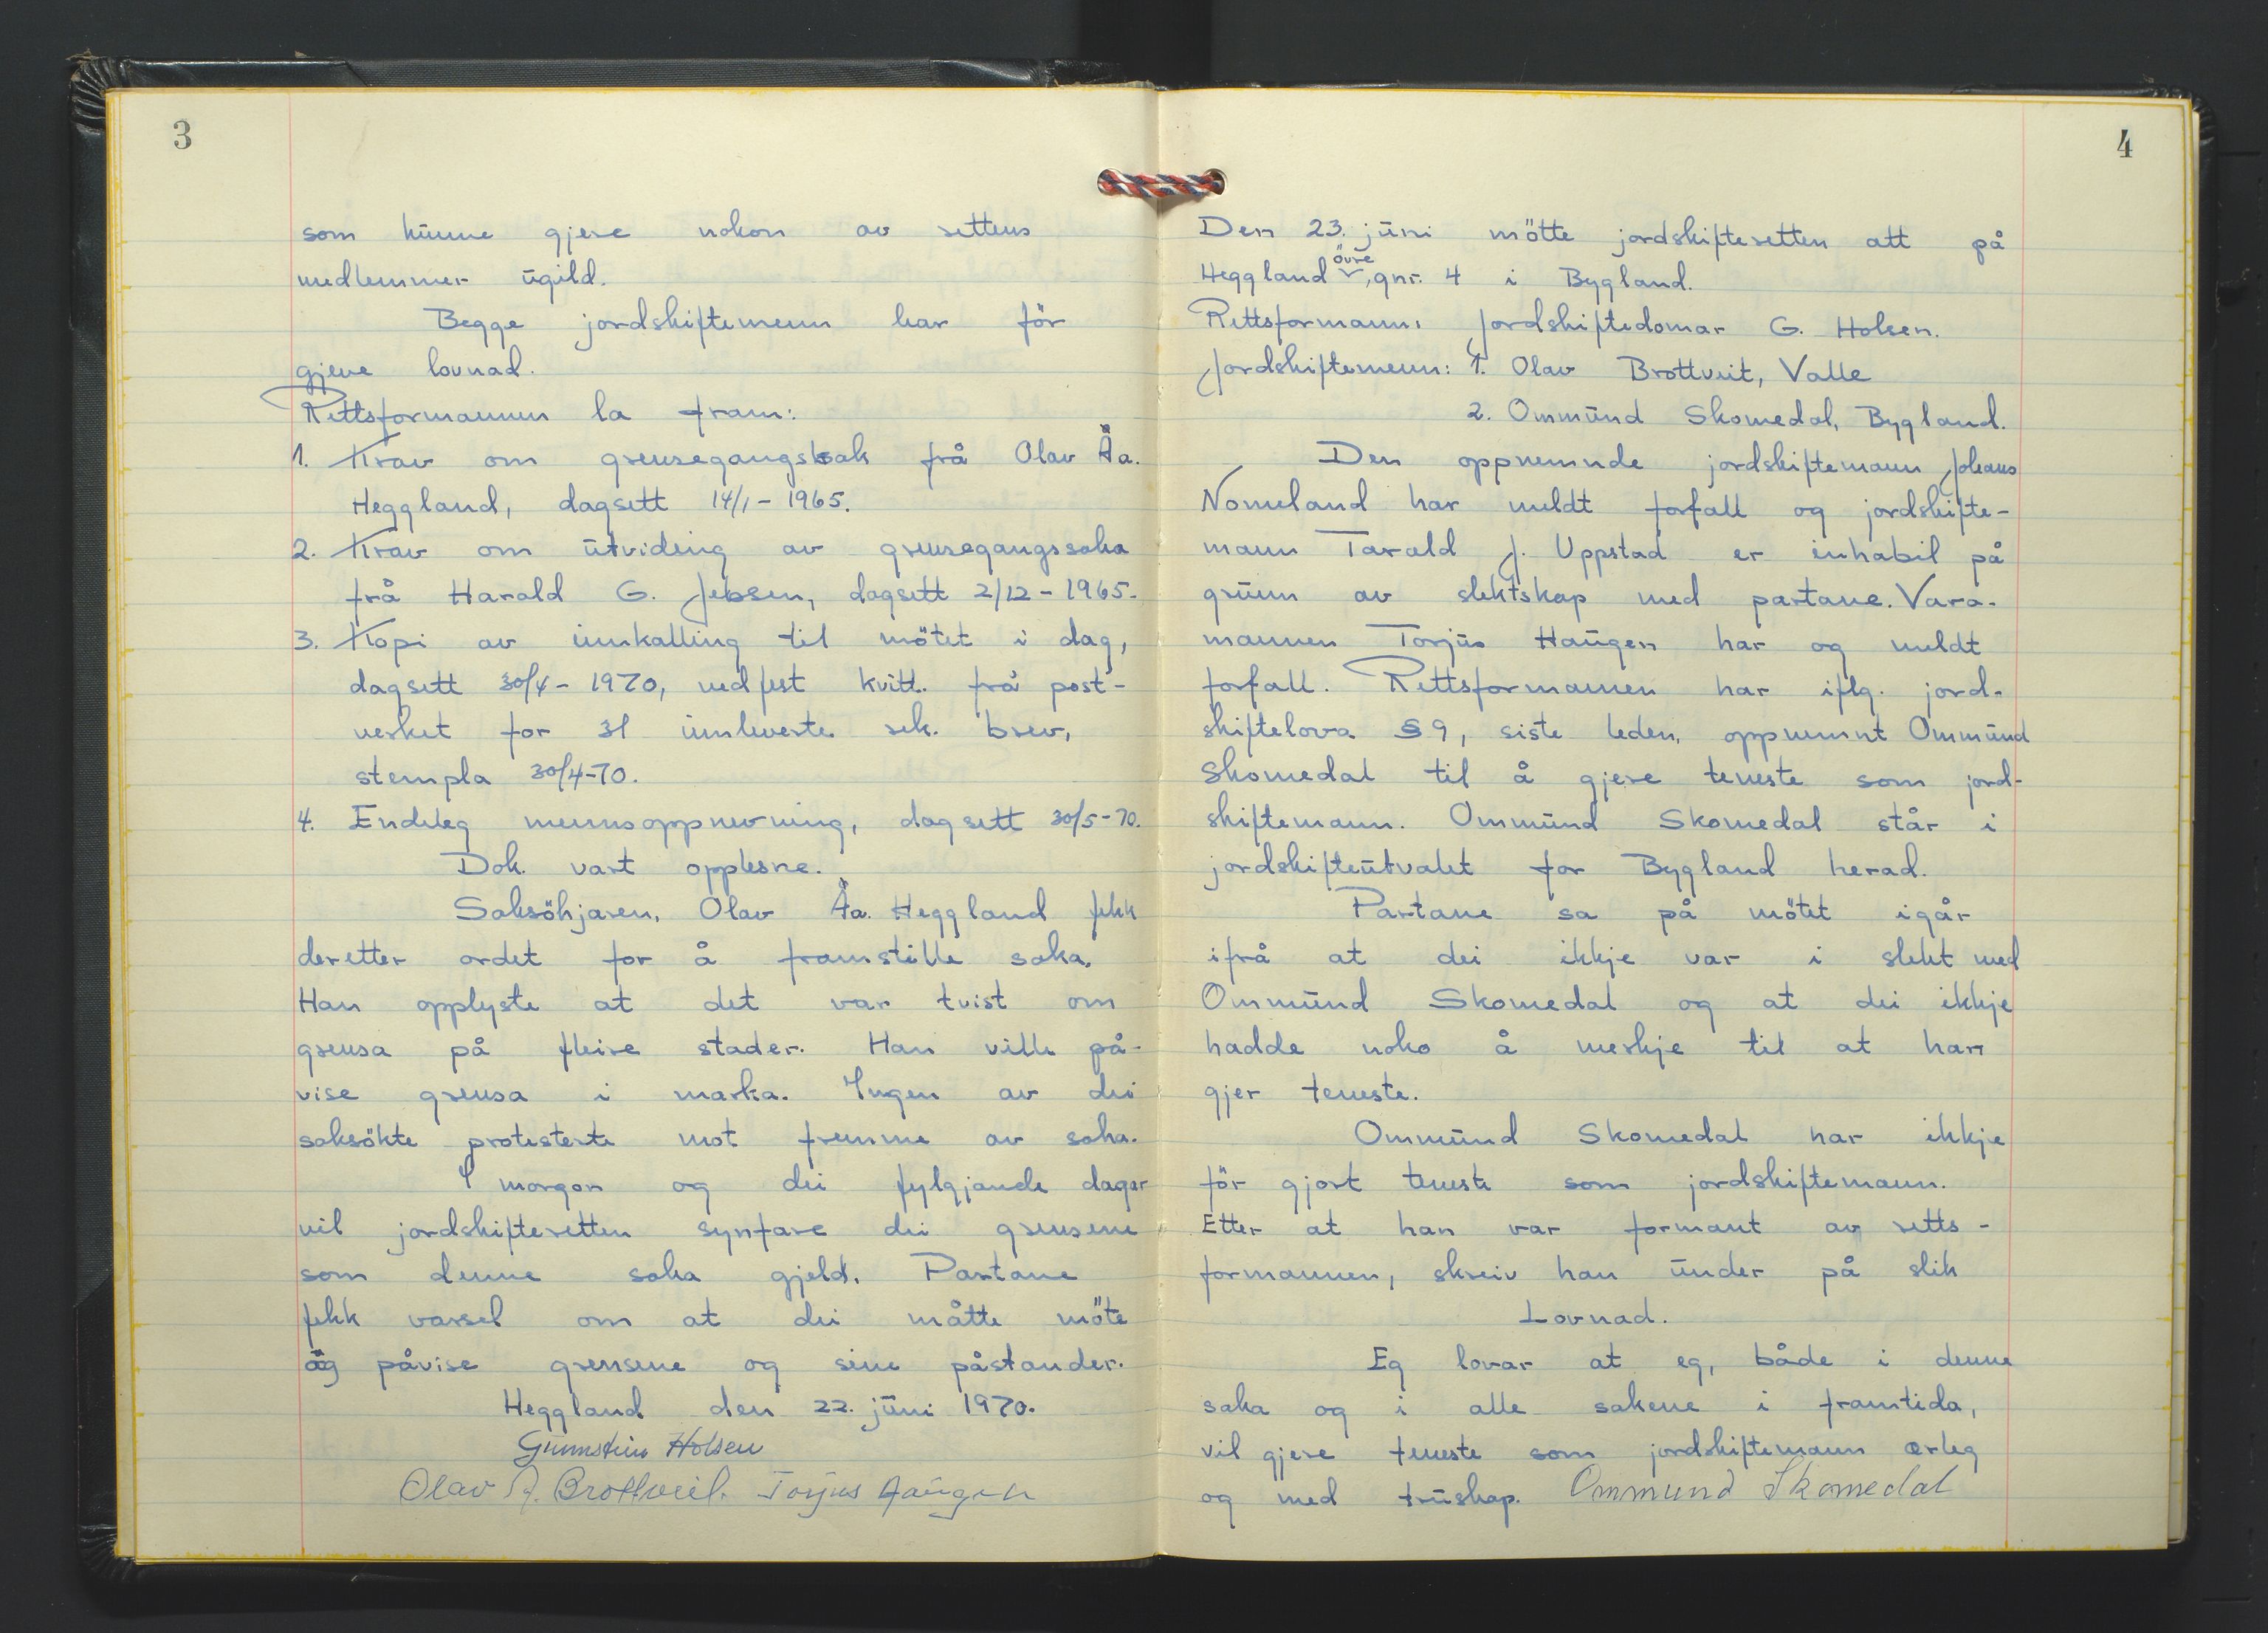 3
som kunne gjere nokon av rettens
medlemmer ugild.
Begge jordskiftemenn har för
gjeve lovnad.
Rettsformannen la fram:
1. Krav om grensegangssak frå Olav Åa.
Heggland, dagsett 14/1 - 1965.
2. Krav om utviding av grensegangssaka
frå Harald G. Jebsen, dagsett 2/12 - 1965.
3. Kopi av innkalling til mötet i dag,
dagsett 30/4 - 1970, vedfest kvitt. frå post-
verket for 31 innleverte rek. brev,
stempla 30/4-70.
4. Endeleg mennsoppnevning, dagsett 30/5-70.
Dok. vart opplesne.
Saksökjaren, Olav Åa. Heggland fekk
deretter ordet for å framstille saka.
Han opplyste at det var tvist om
grensa på fleire stader. Han ville på-
vise grensa i marka. Ingen av dei
saksökte protesterte mot fremme av saka.
I morgon og dei fylgjande dagar
vil jordskifteretten synfare dei grensene
som denne saka gjeld. Partane
fekk varsel om at dei måtte möte
og påvise grensene og sine påstander.
Heggland den 22. juni 1970.
Gunnstein Holsen
Olav J. Brottveit. Torjus Haugen
4
Den 23. juni mötte jordskifteretten att på
Heggland övre, gnr. 4 i Bygland.
Rettsformann: Jordskiftedomar G. Holsen.
Jordskiftemenn: 1. Olav Brottveit, Valle
2. Ommund Skomedal, Bygland.
Den oppnemnde jordskiftemann Johans
Nomeland har meldt forfall og jordskifte-
mann Tarald J. Uppstad er inhabil på
grunn av slektskap med partane. Vara-
mannen Torjus Haugen har og meldt
forfall. Rettsformannen har iflg. jord-
skiftelova § 9, siste leden, oppnemnt Ommund
Skomedal til å gjere teneste som jord-
skiftemann. Ommund Skomedal står i
jordskifteutvalet for Bygland herad.
Partane sa på mötet igår
ifrå at dei ikkje var i slekt med
Ommund Skomedal og at dei ikkje
hadde noko å merkje til at han
gjer teneste.
Ommund Skomedal har ikkje
för gjort teneste som jordskiftemann.
Etter at han var formant av retts-
formannen, skreiv han under på slik
Lovnad.
Eg lovar at eg, både i denne
saka og i alle sakene i framtida,
vil gjere teneste som jordskiftemann ærleg
og med truskap. Ommund Skomedal